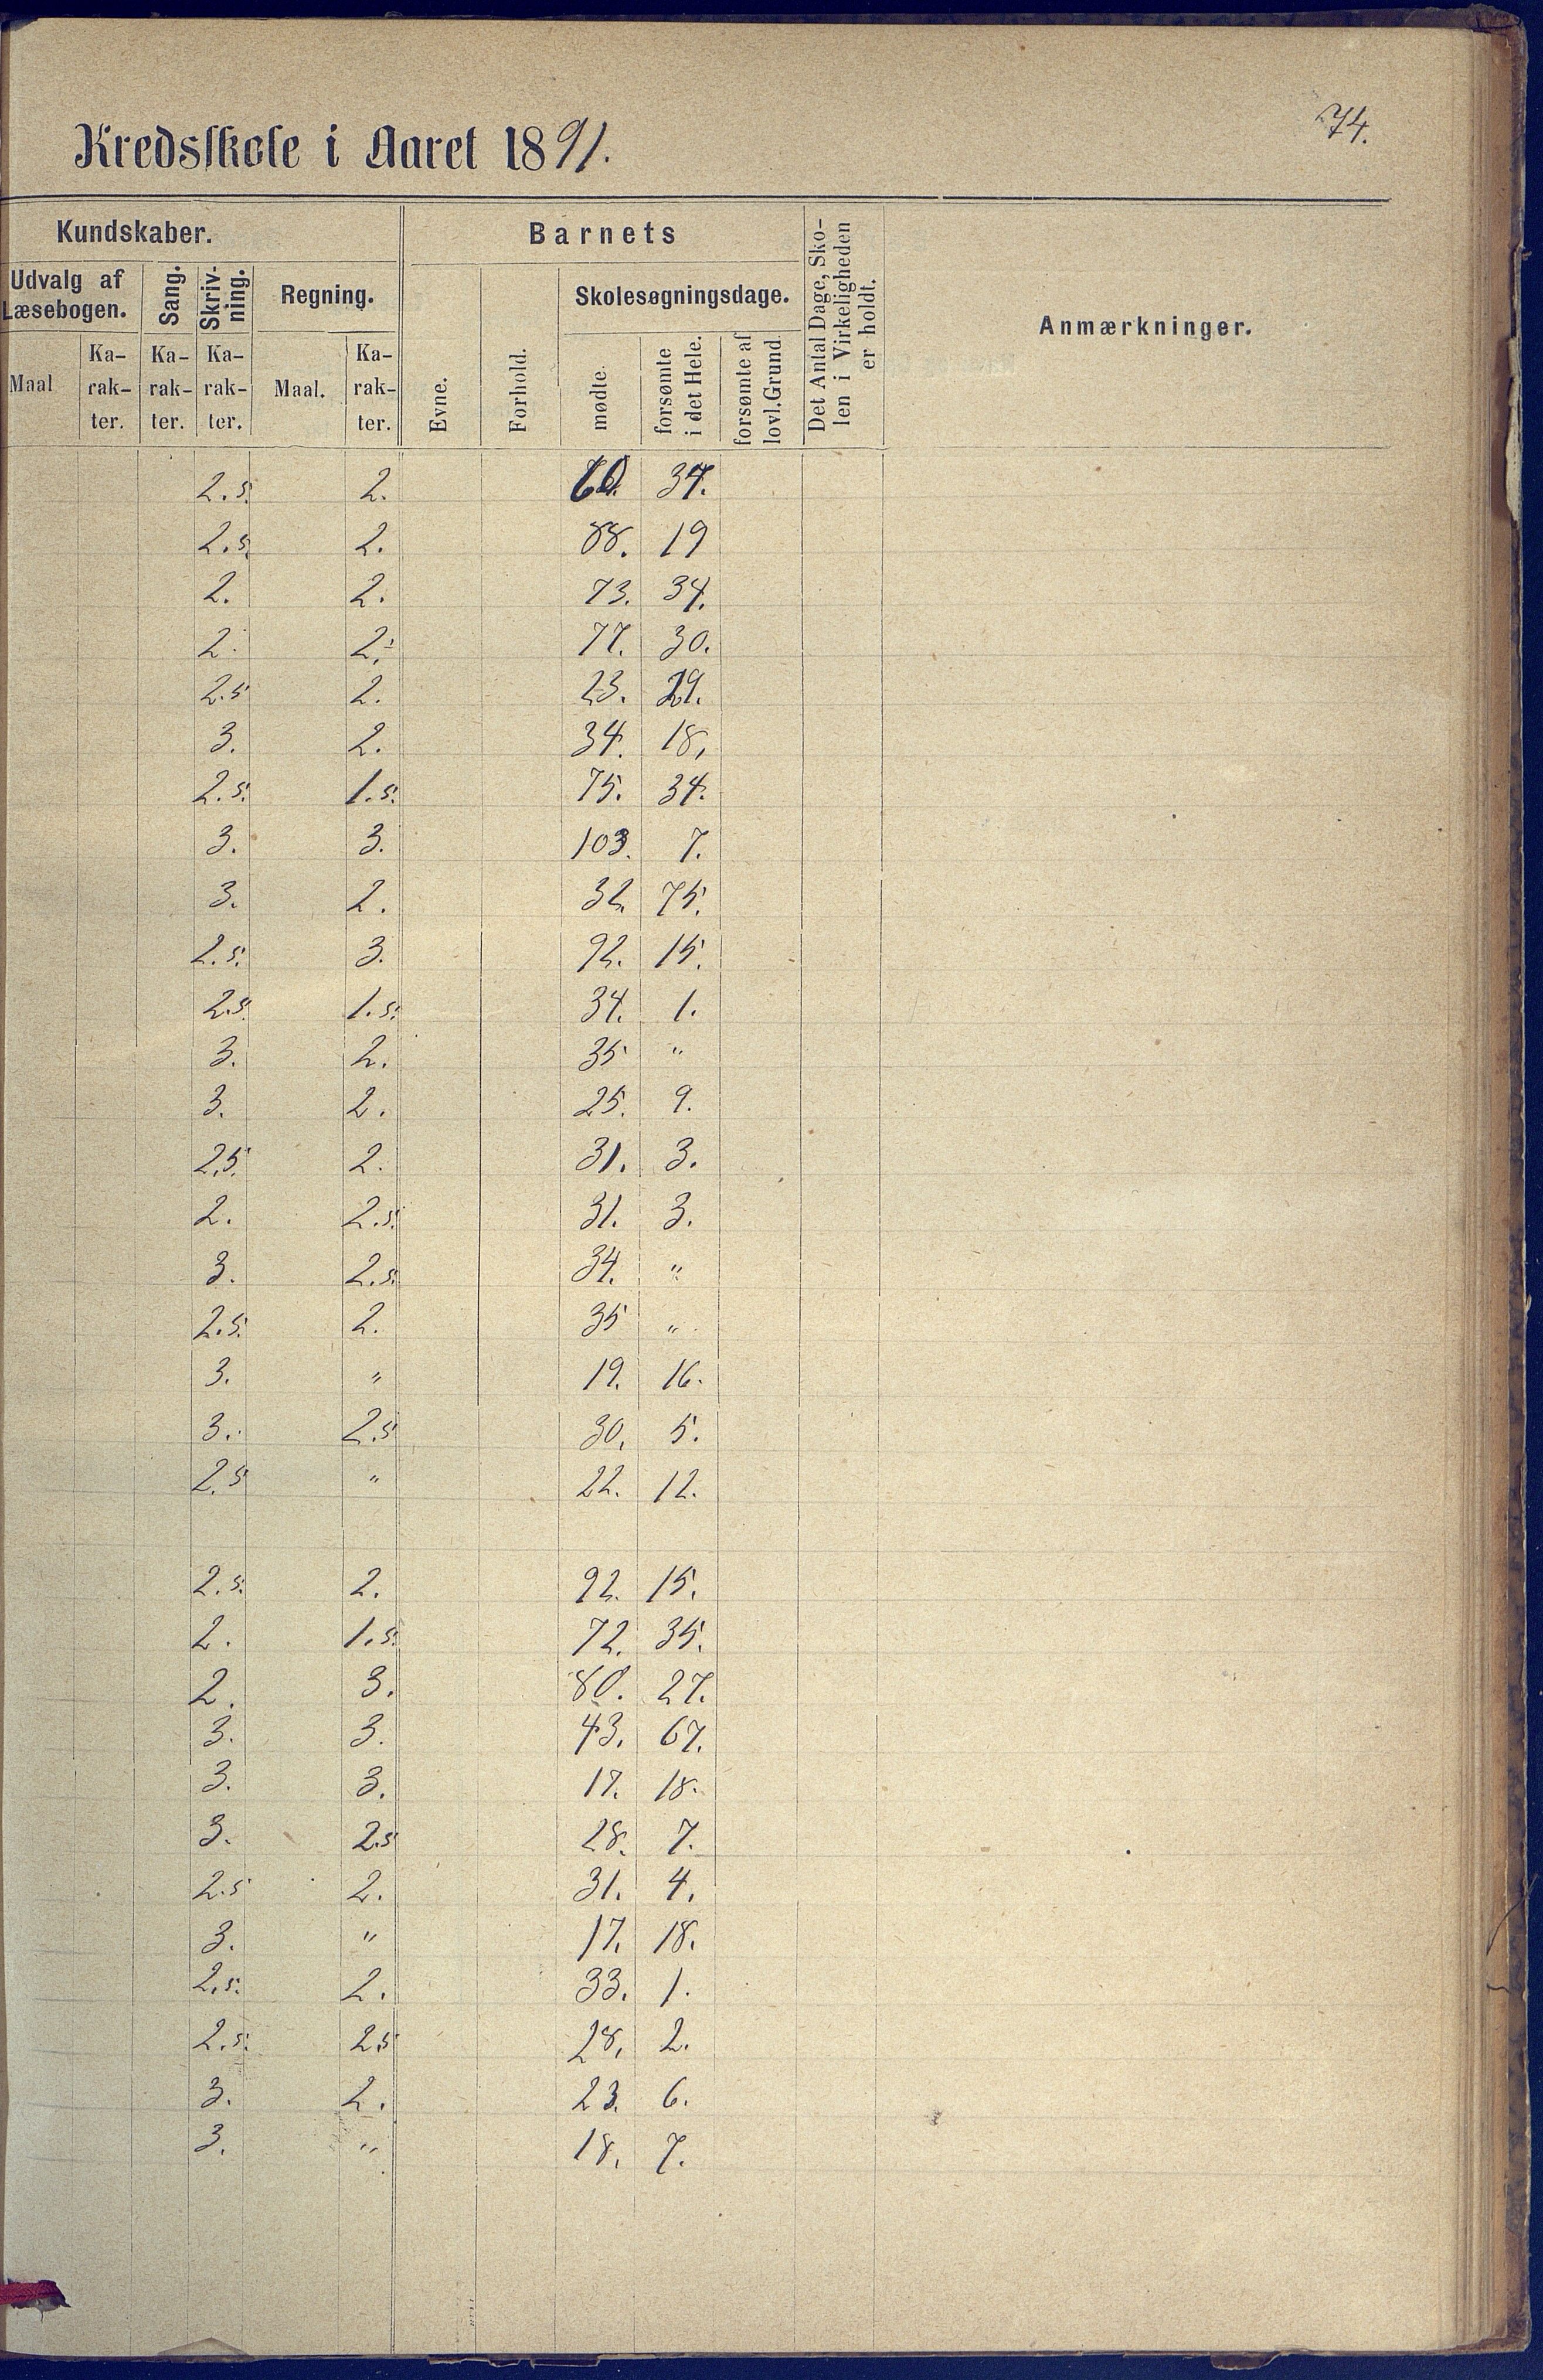 74.
Kredsskole i Aaret 1891.
Kundskaber. Barnets Det Antal Dage, Sko-len i Virkeligheden er holdt. Anmærkninger.
Udvalg af Læsebogen. Sang. Skriv-ning. Regning. Evne. Forhold. Skolesøgningsdage.
Maal Ka-rak-ter. Ka-rak-ter. Ka-rak-ter. Maal. Ka-rak-ter. mødte. forsømte i det Hele. forsømte af lovl. Grund.
2.5. 2. 37.
2.5. 2. 88. 19
2. 2. 73. 34.
2. 2. 77. 30.
2.5 2. 23. 29.
3. 2. 34. 18.
2.5. 1.5. 75. 34.
3. 3. 103. 7.
3. 2. 32 75.
2.5. 3. 92. 15.
2.5. 1.5. 34. 1.
3. 2. 35 "
3. 2. 25. 9.
2.5. 2. 31. 3.
2. 2.5. 31. 3.
3. 2.5. 34. "
2.5. 2. 35 "
3. " 19. 16.
3. 2.5 30. 5.
2.5 " 22. 12.
2.5. 2. 92. 15.
2. 1.5. 72. 35.
2. 3. 80. 27.
3. 3. 43. 67.
3. 3. 17. 18.
3. 2.5 28. 7.
2.5 2. 31. 4.
3. " 17. 18.
2.5. 2. 33. 1.
2.5. 2.5 28. 2.
3. 2. 23. 6.
3. " 18. 7.